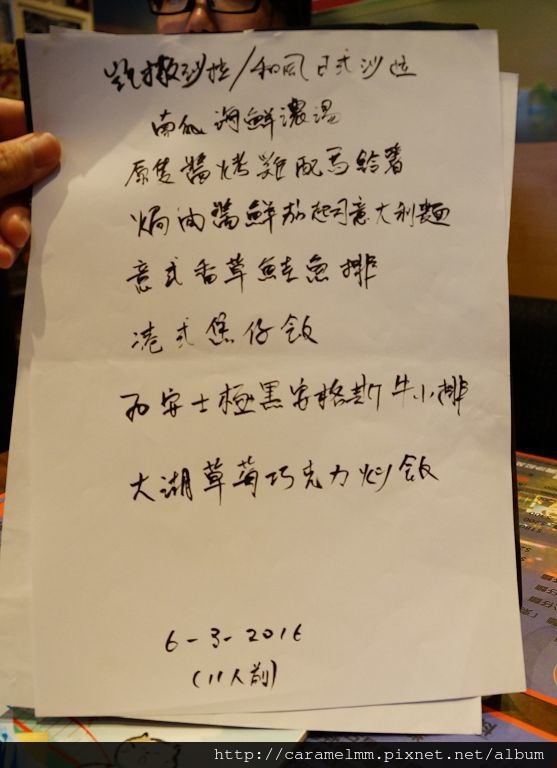 凱撒沙拉/和風日式沙拉
南瓜海鮮濃湯
原隻醬烤雞配馬鈴薯
焗油醬鮮茄起司意大利麵
意式香草鮭魚排
港式煲仔飯
安士極黑安格斯牛小排
大湖草莓巧克力炒飯
6-3-2016
(11人前)
http://caramelmm.pixnet.net/album